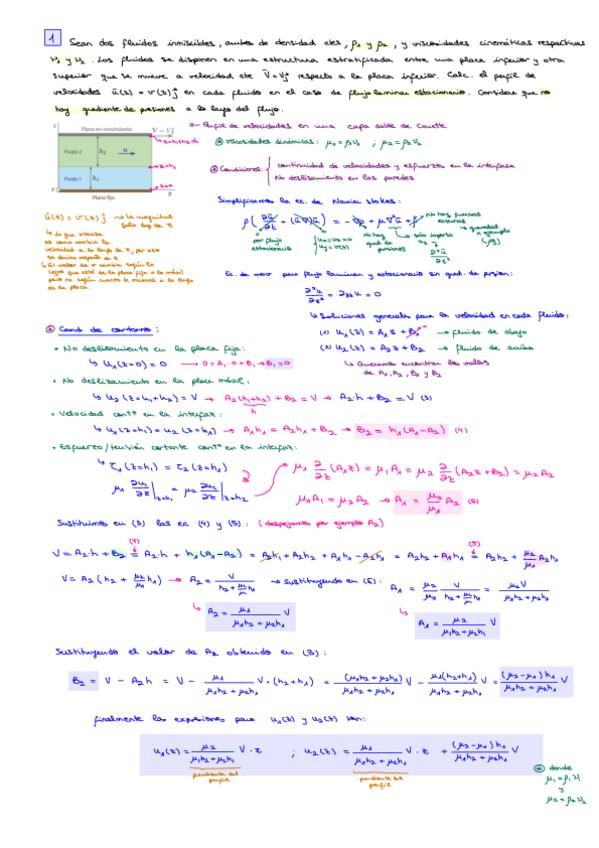 1 Sean dos fluidos inmiscibles, ambos de densidad ctes, ρ₁ y ρ₂, y viscosidades cinemáticas respectivas
ν₁ y ν₂. Los fluidos se disponen en una estructura estratificada entre una placa inferior y otra
superior que se mueve a velocidad cte V̄ = Vĵ respecto a la placa inferior. Calc. el perfil de
velocidades ū(z) = v(z)ĵ en cada fluido en el caso de flujo laminar estacionario. Considerar que no
hay gradiente de presiones a lo largo del flujo.
Plano en movimiento V = Vĵ
Fluido 2 h₂ u
Fluido 1 h₁
Plano fijo
z=h₁
z=0
Perfil de velocidades en una capa doble de Couette
Viscosidades dinámicas: μ₁ = ρ₁ν₁ ; μ₂ = ρ₂ν₂
Condiciones: { continuidad de velocidades y esfuerzo en la interfase
No deslizamiento en las paredes
Simplificamos la ec. de Navier Stokes:
ρ(∂ū/∂t + (ū∇)ū) = -∇p + μ∇²ū + f
no hay fuerzas externas
por flujo estacionario
no hay grad. de presiones
solo importa
∂²u/∂z²
ū(z) = v(z)ĵ
Ec. de mov para flujo laminar y estacionario sin grad. de presión:
∂²u/∂z² = ∂zz u = 0
↳ Soluciones generales para la velocidad en cada fluido:
(1) u₁(z) = A₁z + B₁ → fluido de abajo
(2) u₂(z) = A₂z + B₂ → fluido de arriba
↳ Queremos encontrar los valores
de A₁, A₂, B₁ y B₂
Cond. de contorno:
• No deslizamiento en la placa fija:
↳ u₁(z=0) = 0 → 0 = A₁·0 + B₁ → B₁ = 0
• No deslizamiento en la placa móvil:
↳ u₂(z=h₁+h₂) = V → A₂(h₁+h₂) + B₂ = V → A₂h + B₂ = V (3)
h
• Velocidad contª en la interfaz:
↳ u₁(z=h₁) = u₂(z=h₁) → A₁h₁ = A₂h₁ + B₂ → B₂ = h₁(A₁-A₂) (4)
• Esfuerzo/tensión cortante contª en la interfaz:
↳ τ₁(z=h₁) = τ₂(z=h₁)
μ₁ ∂u₁/∂z |z=h₁ = μ₂ ∂u₂/∂z |z=h₁
μ₁ ∂/∂z (A₁z) = μ₁A₁ = μ₂ ∂/∂z (A₂z+B₂) = μ₂A₂
μ₁A₁ = μ₂A₂ → A₁ = μ₂/μ₁ A₂ (5)
Sustituimos en (3) las ec (4) y (5): (despejamos por ejemplo A₂)
(4) (5)
V = A₂·h + B₂ = A₂·h + h₁(A₁-A₂) = A₂h₁ + A₂h₂ + A₁h₁ - A₂h₁ = A₂h₂ + A₁h₁ = A₂h₂ + μ₂/μ₁ A₂h₁
V = A₂(h₂ + μ₂/μ₁ h₁) → A₂ = V/(h₂ + μ₂/μ₁ h₁) → sustituyendo en (5): A₁ = μ₂/μ₁ V/(h₂ + μ₂/μ₁ h₁) = μ₂V/(μ₁h₂ + μ₂h₁)
↳ A₂ = μ₁/(μ₁h₂ + μ₂h₁) V
↳ A₁ = μ₂/(μ₁h₂ + μ₂h₁) V
Sustituyendo el valor de A₂ obtenido en (3):
B₂ = V - A₂h = V - μ₁/(μ₁h₂ + μ₂h₁) V·(h₂+h₁) = (μ₁h₂ + μ₂h₁)/(μ₁h₂ + μ₂h₁) V - μ₁(h₂+h₁)/(μ₁h₂ + μ₂h₁) V = (μ₂-μ₁)h₁/(μ₁h₂ + μ₂h₁) V
finalmente las expresiones para u₁(z) y u₂(z) son:
u₁(z) = μ₂/(μ₁h₂ + μ₂h₁) V·z ; u₂(z) = μ₁/(μ₁h₂ + μ₂h₁) V·z + (μ₂-μ₁)h₁/(μ₁h₂ + μ₂h₁) V
pendiente del perfil
pendiente del perfil
donde
μ₁ = ρ₁ν₁
y
μ₂ = ρ₂ν₂